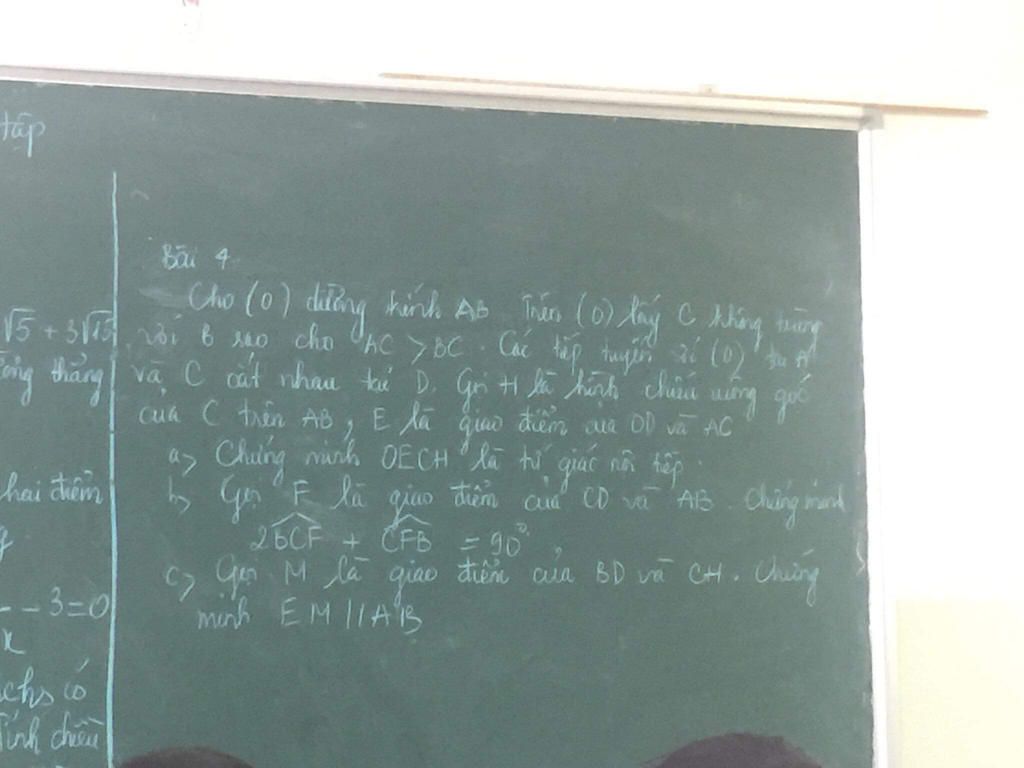 tập
√5 + 3√15
ường thẳng
hai điểm
g
- 3 = 0
x
có
Tính chiều
Bài 4
Cho (O) đường kính AB. Trên (O) lấy C không trùng
với B sao cho AC > BC. Các tiếp tuyến với (O) tại A
và C cắt nhau tại D. Gọi H là hình chiếu vuông góc
của C trên AB, E là giao điểm của OD và AC
a> Chứng minh OECH là tứ giác nội tiếp.
b> Gọi F là giao điểm của CD và AB. Chứng minh
2BCF + CFB = 90°
c> Gọi M là giao điểm của BD và CH. Chứng
minh EM // AB